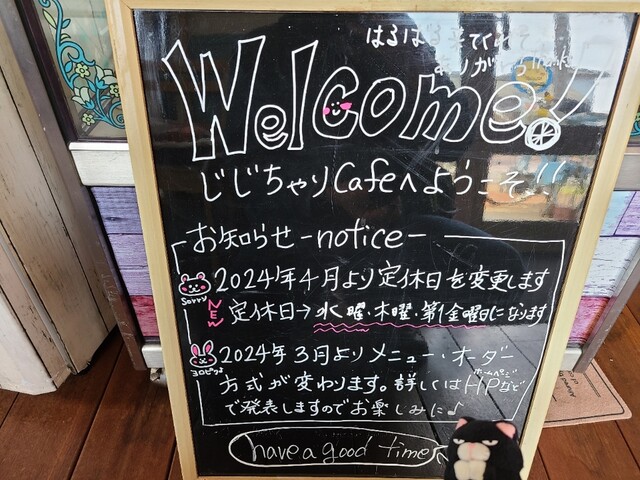 はるばる来てくれて
ありがとう Thanks
Welcome!
じじちゃりCafeへようこそ!!
お知らせ -notice-
2024年4月より定休日を変更します
Sorry
NEW
定休日→水曜・木曜・第1金曜日になります
2024年3月よりメニュー・オーダー
ヨロピク♪
方式が変わります。詳しくはHPなど
ホームページ
で発表しますのでお楽しみに♪
have a good time